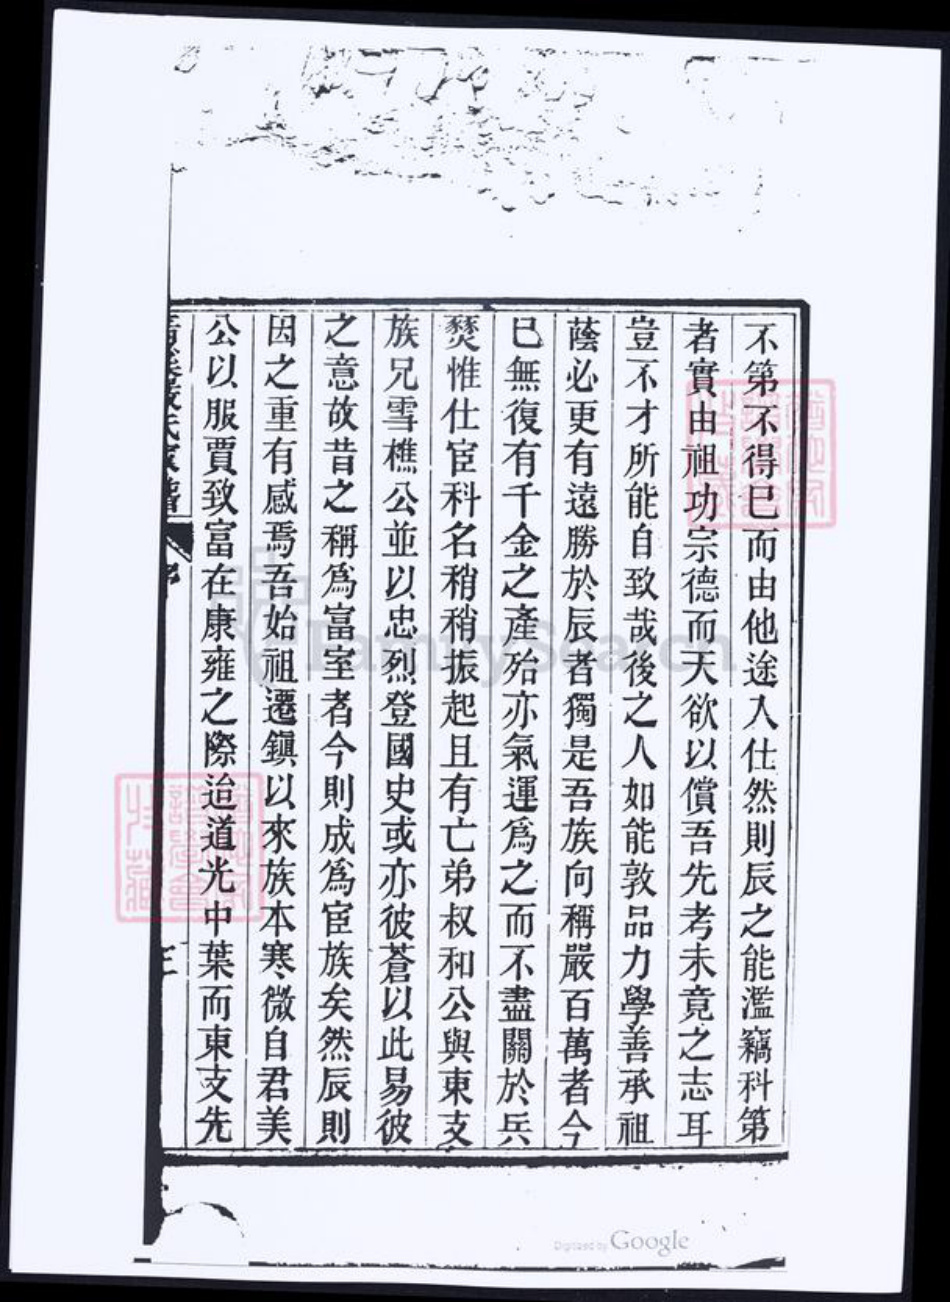 不第不得已而由他途入仕然則辰之能濫竊科第
者實由祖功宗德而天欲以償吾先考未竟之志耳
豈不才所能自致哉後之人如能敦品力學善承祖
蔭必更有遠勝於辰者獨是吾族向稱嚴百萬者今
已無復有千金之產殆亦氣運為之而不盡關於兵
燹惟仕宦科名稍稍振起且有亡弟叔和公與東支
族兄雪樵公並以忠烈登國史或亦彼蒼以此易彼
之意故昔之稱為富室者今則成為宦族矣然辰則
因之重有感焉吾始祖遷鎮以來族本寒微自君美
公以服賈致富在康雍之際迨道光中葉而東支先
氏家譜
序
三
FamilySearch
Digitized by Google